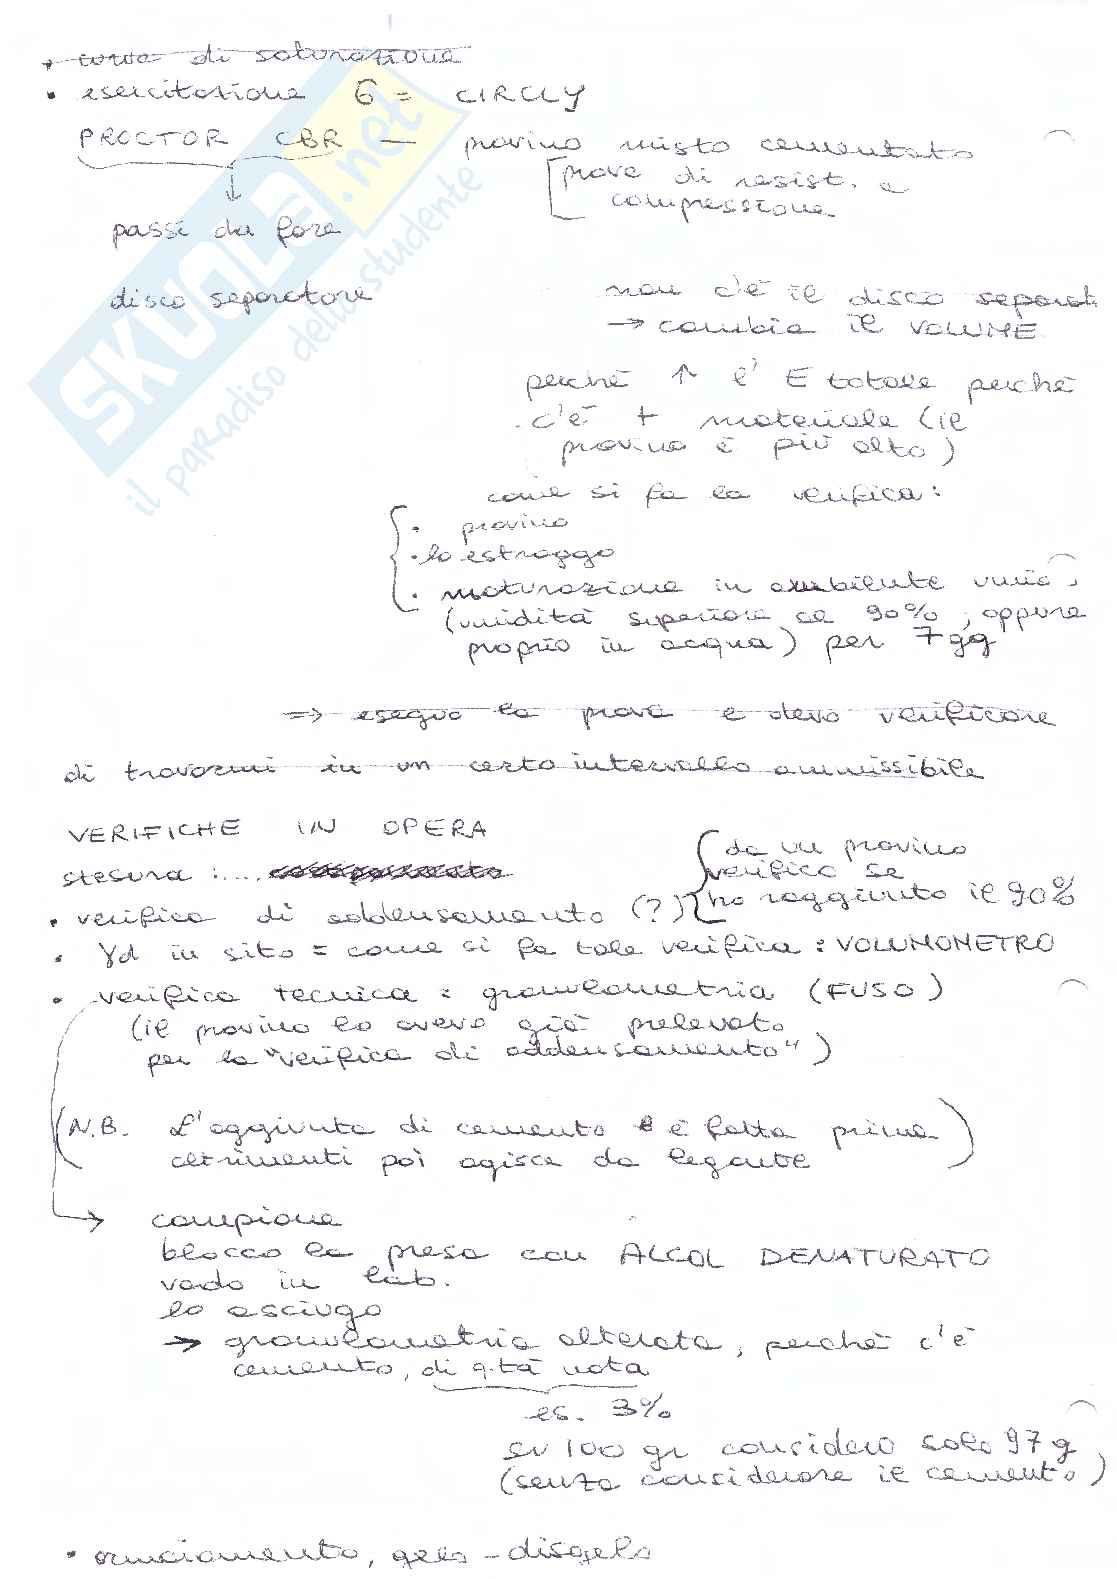 • curva di saturazione
• esercitazione 6 = CIRCLY
PROCTOR CBR — provino misto cementato
prove di resist. a
compressione
passi da fare
disco separatore
non c'è il disco separat.
→ cambia il VOLUME
perché ↑ l' E totale perché
c'è + materiale (il
provino è più alto)
come si fa la verifica:
• provino
• lo estraggo
• maturazione in ambiente umido
(umidità superiore al 90%, oppure
proprio in acqua) per 7gg
⇒ eseguo la prova e devo verificare
di trovarmi in un certo intervallo ammissibile
VERIFICHE IN OPERA
stesura : ....
da un provino
verifico se
ho raggiunto il 90%
• verifica di addensamento (?)
• γd in sito = come si fa tale verifica : VOLUMOMETRO
• verifica tecnica : granulometria (FUSO)
(il provino lo avevo già prelevato
per la "verifica di addensamento")
(N.B. L'aggiunta di cemento è fatta prima
altrimenti poi agisce da legante)
→ campione
blocco la presa con ALCOL DENATURATO
vado in lab.
lo asciugo
→ granulometria alterata, perché c'è
cemento, di q.tà nota
es. 3%
su 100 gr considero solo 97g
(senza considerare il cemento)
• ormaiamento, gelo-disgelo
SKUOLA.net
il paradiso dello studente